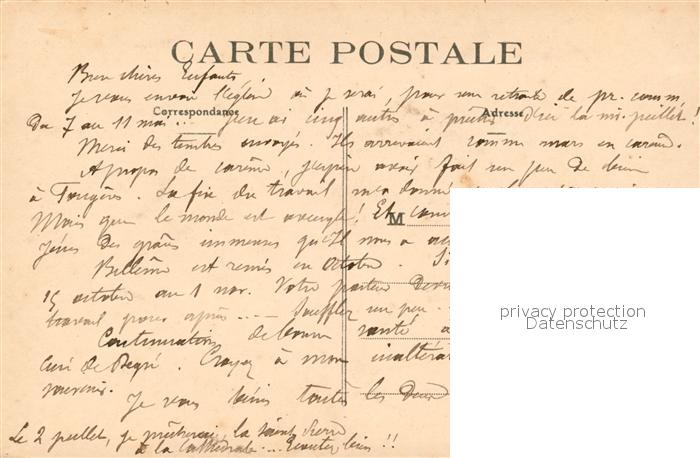 CARTE POSTALE
Bien chères Enfants
Je vous envoie l'église où je serai pour une retraite de pr. comm.
Correspondance
Adresse
Du 7 au 11 mai... J'en ai cinq autres à prêcher d'ici la mi-juillet!
Merci des timbres envoyés. Ils arrivaient comme mars en carême.
A propos de carême, j'espère avoir fait un peu de bien
à Fougères. La fin du travail m'a donné
Mais que le monde est aveugle! Et
M
Jésus des grâces immenses qu'Il nous a
est remis en Octobre. Si
15 octobre au 1 nov. Votre
travail pour après... Souffler un peu.
Continuation de bonne santé à
Curé de Segré. Croyez à mon
souvenir.
Je vous bénis toutes les deux
privacy protection
Datenschutz
Le 2 juillet, je prêcherai la Saint Pierre
à la Cathédrale... Ecoutez bien!!